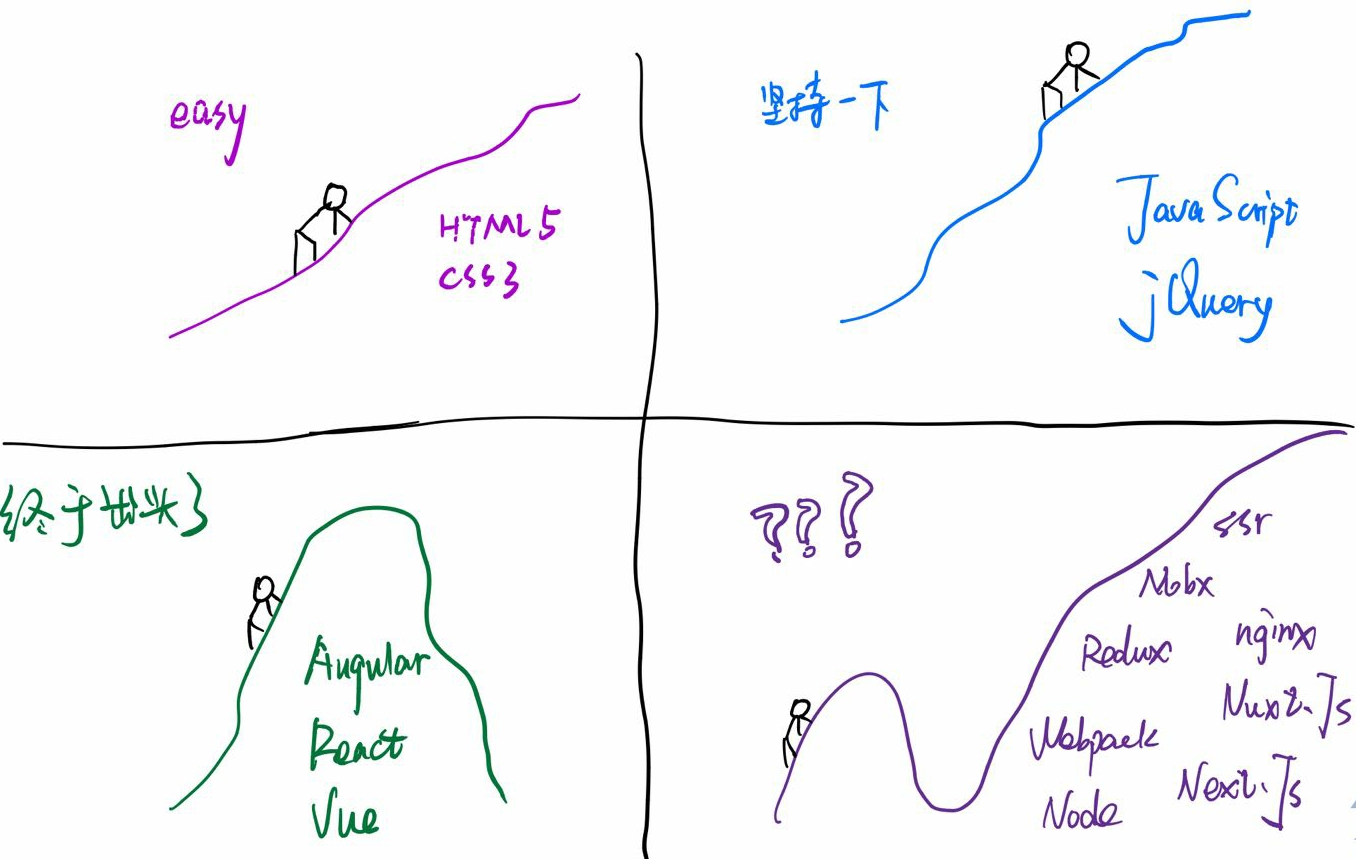 easy
HTML5
CSS3
坚持一下
JavaScript
jQuery
终于出头了
Angular
React
Vue
???
ssr
Mobx
Redux
nginx
Nuxt.Js
Webpack
Next.Js
Node